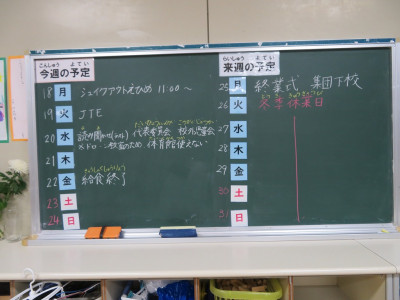 こんしゅう よてい
今週の予定
18 月 シェイクアウトえひめ 11:00〜
19 火 JTE
20 水 代表委員会
体育館使えない
21 木
きゅうしょくしゅうりょう
22 金 給食終了
23 土
24 日
らいしゅう よてい
来週の予定
25 月 終業式 集団下校
26 火 冬季休業日
27 水
28 木
29 金
30 土
31 日